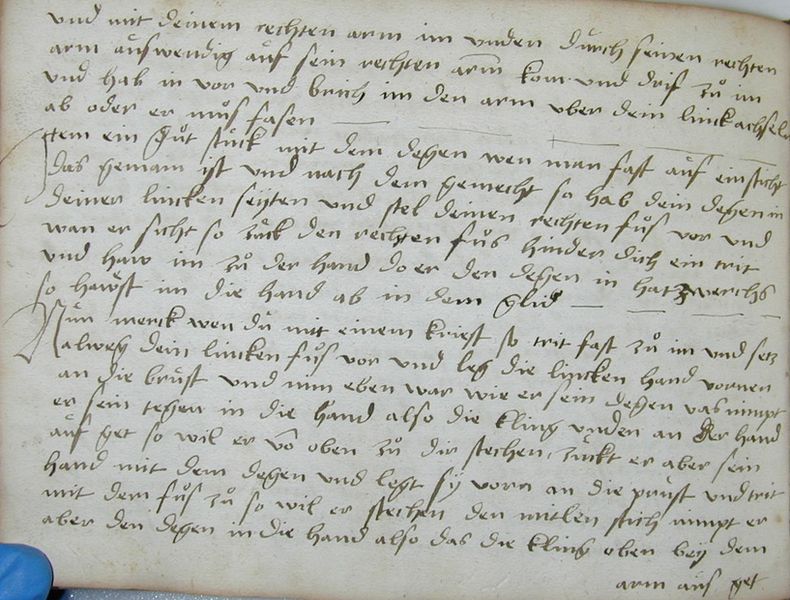 und mit deinem rechten arm im unden durch seinen rechten
arm auswendig auf sein rechten arm kom und drif zu im
und hab in vor und brich im den arm uber dein linck achseln
ab oder er mus fasen
Item ein gut stuck mit dem degen wen man fast auf ein sticht
das gemain ist und nach dem gemecht so hab dein degen in
deiner lincken seyten und stel deinen rechten fus vor und
wan er sticht so zuck den rechten fus hinder dich ein trit
und haw im zu der hand do er den degen in hat zwerchs
so hawst im die hand ab in dem glid
Nun merck wen du mit einem kriegst so trit fast zu im und setz
alweg dein lincken fus vor und leg die lincken hand vornen
an die brust und nim eben war wie er sein degen vas nimpt
er sein tegen in die hand also die kling unden an der hand
auf get so wil er vo oben zu dir stechen, zuckt er aber sein
hand mit dem degen und legt sy vorn an die prust und trit
mit dem fus zu so wil er stechen den mitlen stich nimpt er
aber den degen in die hand also das die kling oben bey dem
arm aus get